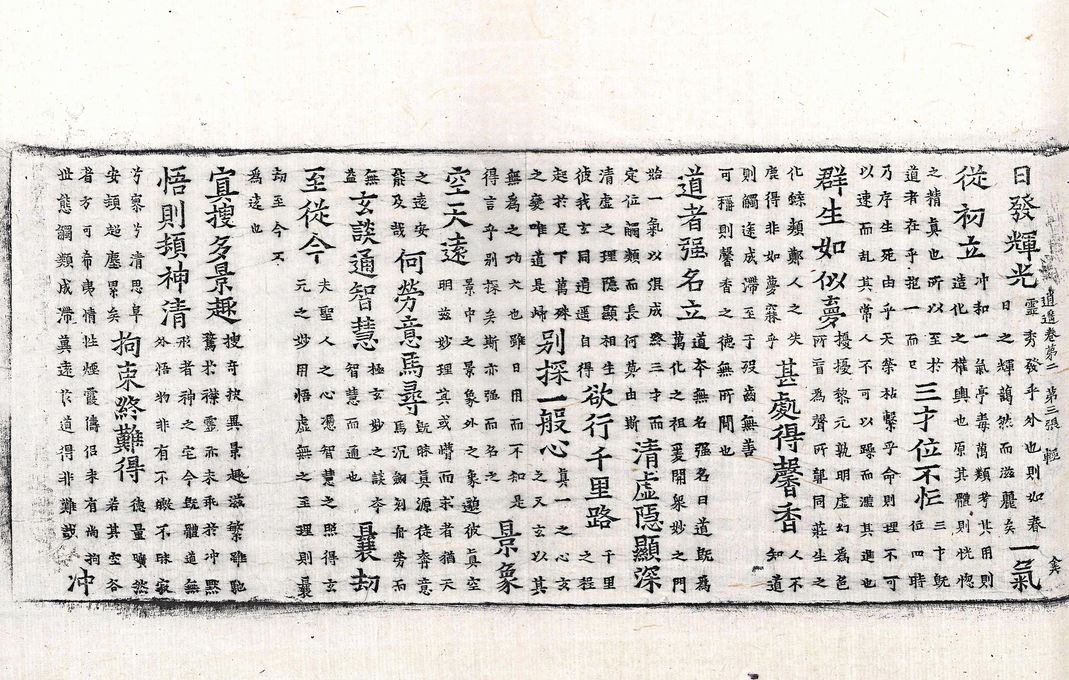 日發輝光
靈秀發乎外也則如春
日之輝藹然而滋麗矣
一氣
卷第二 第三張 輕
從初立
沖和一氣亭毒萬類考其用則
造化之權輿也原其體則恍惚
之精真也所以至於
道者在乎抱一而已
三才位不忙
三才既
位四時
乃序生死由乎天榮枯繫乎命則理不可
以速而乱其常人不可以躁而濫其進也
群生如似夢
擾擾黎元孰明虛幻為色
所盲為聲所聾同莊生之
化蝶類鄭人之失
鹿得非如夢寐乎
甚處得馨香
人不
知道
則觸途成滯至于没齒無善
可稱則馨香之德無所聞也
道者强名立
道夲無名强名曰道既爲
萬化之祖爰開衆妙之門
始一氣以俱成終三才而
定位觸類而長何莫由斯
清虛隱顯深
清虛之理隱顯相生
彼我玄同逍遥自得
欲行千里路
千里
之程
起於足下萬殊
之奧唯道是歸
別探一般心
真一之心玄
之又玄以其
無爲之功大也雖日用而不知是
得言乎别探矣斯亦强而名之
景象
空天遠
景中之景象外之象邈彼真空
明兹妙理其或懵而求者猶天
之遠安
能及哉
何勞意馬尋
既昧真源徒奔意
馬沉劔刻舟勞而
無
益
玄談通智慧
極玄妙之談夲
智慧而通也
曩劫
至從今
夫聖人之心憑智慧之照得玄
元之妙用悟虛無之至理則曩
劫至今不
為遠也
冥搜多景趣
搜奇抉異景趣滋繁雖馳
騖於襟靈亦未乖於沖黙
悟則頻神清
形者神之宅今既體道無
外悟物非有不皦不昧寂
兮寥兮清思阜
安頻超塵累矣
拘束終難得
德量曠然
若其空谷
者方可希夷情性煙霞儔侣来有尚拘
世態觸類成滯真遠於道得非難哉
沖